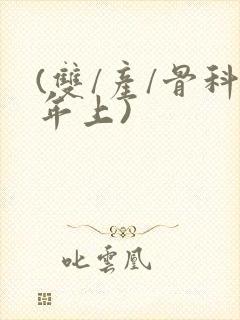 (雙/產/骨科
年上)
叱雲凰